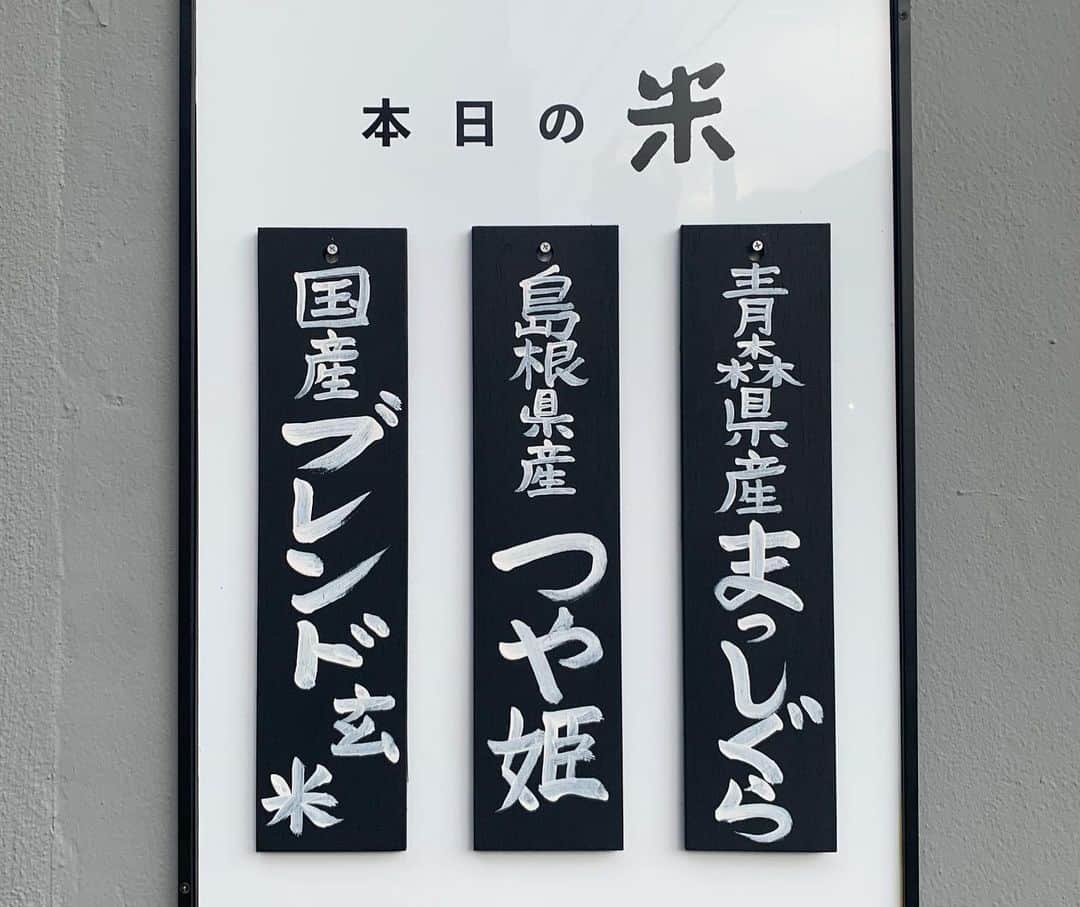 本日の米
青森県産まっしぐら
島根県産つや姫
国産ブレンド玄米